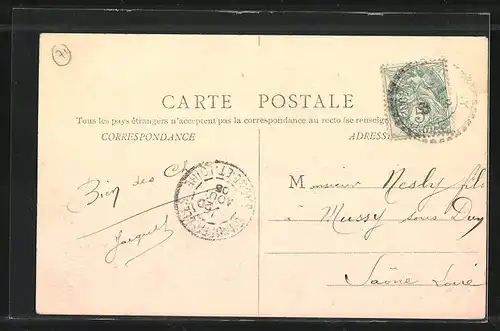 71
CARTE POSTALE
Tous les pays étrangers n'acceptent pas la correspondance au recto (se renseign
CORRESPONDANCE
ADRESSE
Bien des
Jacquet
SAONE-ET-LOIRE
20
AOU.
08
Monsieur Nesly fils
à Mussy sous Dun
Saône Loire